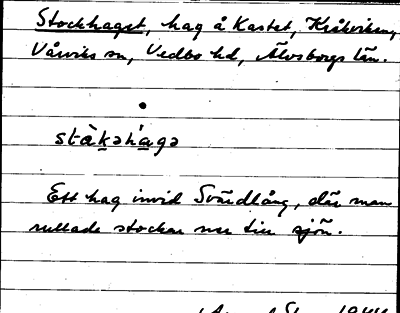 Stockhaget, hag å Kastet, Kråkviken,
Vårviks sn, Vedbo hd, Älvsborgs län.
stàkǝhága
Ett hag invid Svärdlång, där man
rullade stockar ner till sjön.